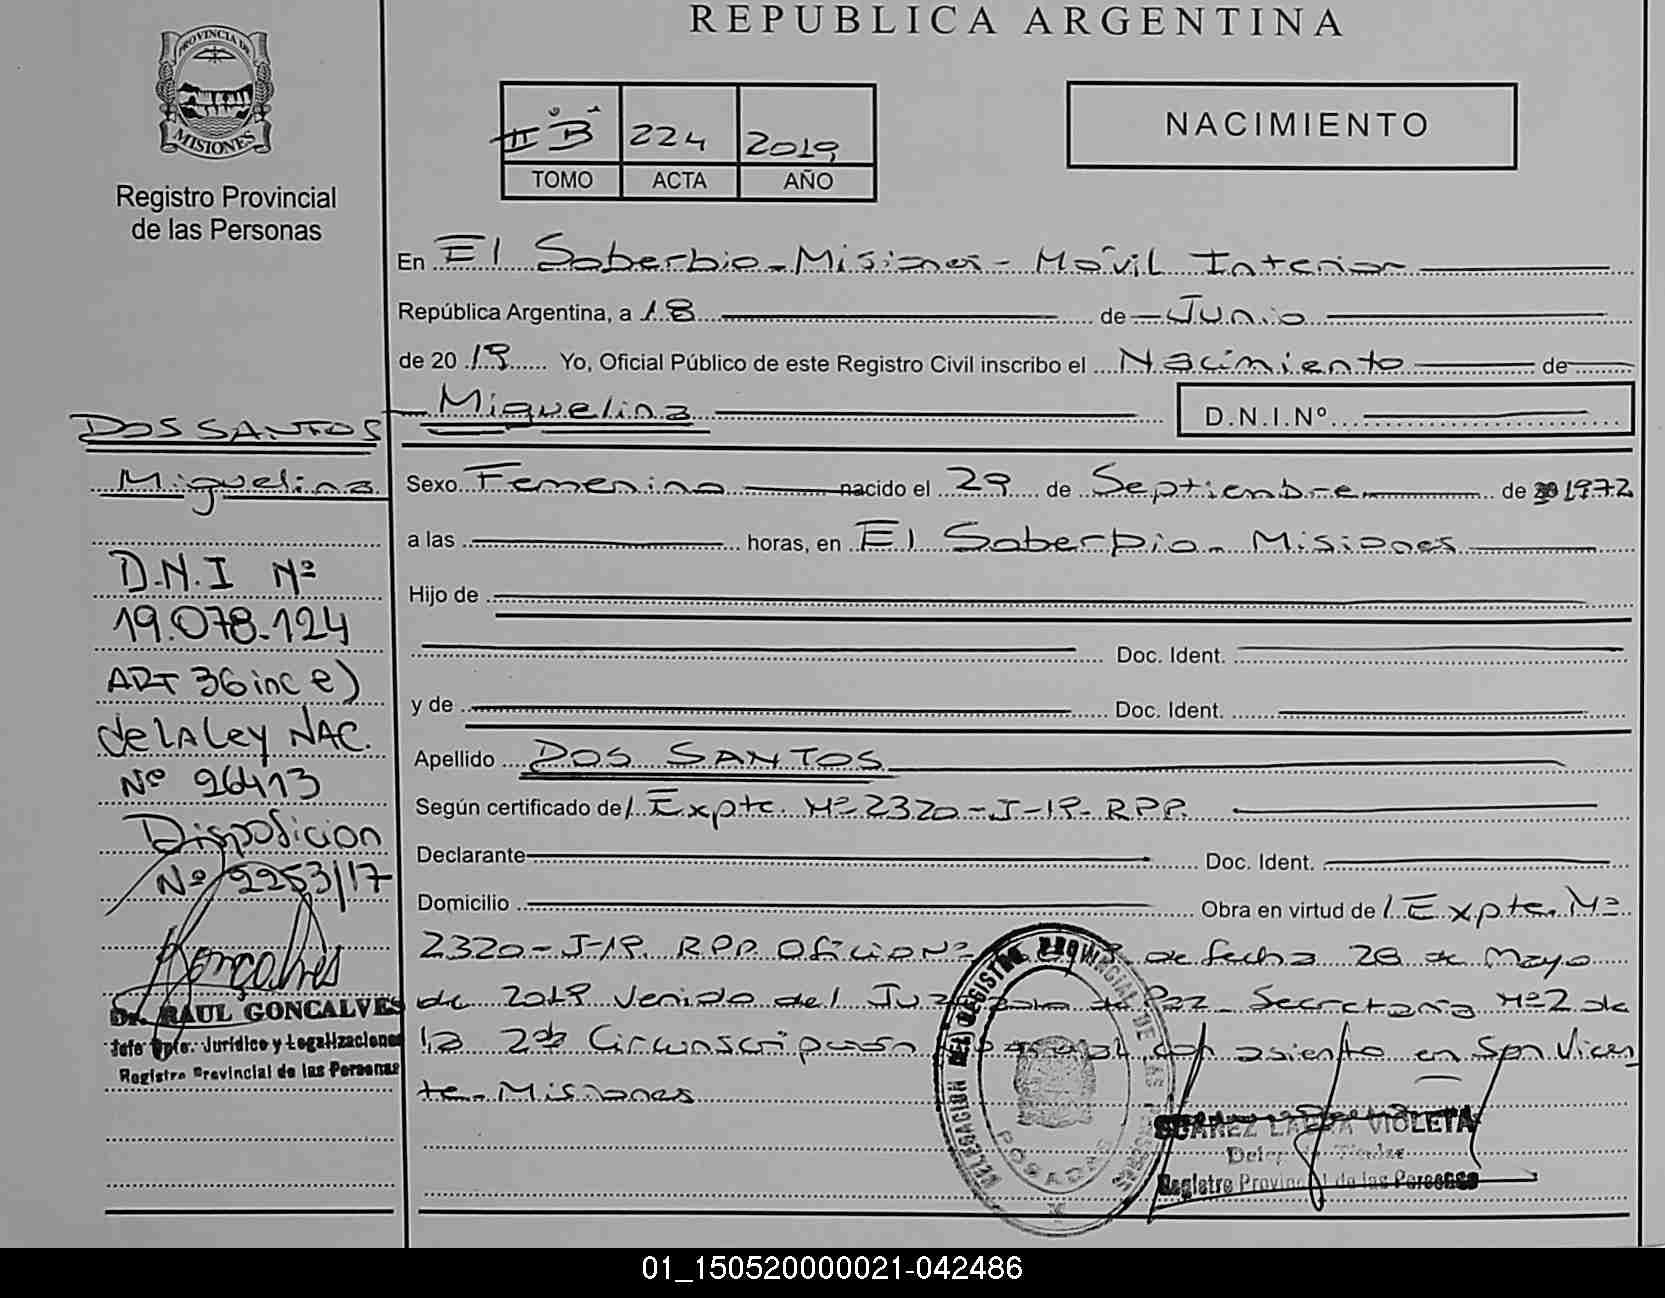 REPUBLICA ARGENTINA
PROVINCIA DE
MISIONES
Registro Provincial
de las Personas
II B 224 2019
TOMO ACTA AÑO
NACIMIENTO
En El Soberbio - Misiones - Móvil Interior
República Argentina, a 18 de Junio
de 20 19 Yo, Oficial Público de este Registro Civil inscribo el Nacimiento de
Miguelina D.N.I.Nº
DOS SANTOS
Miguelina
D.N.I Nº
19.078.124
ART 36 inc e)
de la Ley NAC.
Nº 26413
Disposicion
Nº 2253/17
Gonçalves
Dr. RAUL GONCALVES
Jefe Dpto. Jurídico y Legalizaciones
Registro Provincial de las Personas
Sexo Femenino nacido el 29 de Septiembre de 1972
a las horas, en El Soberbio - Misiones
Hijo de
Doc. Ident.
y de Doc. Ident.
Apellido DOS SANTOS
Según certificado de/ Expte. Nº 2320-J-19-RPP.
Declarante Doc. Ident.
Domicilio Obra en virtud de/ Expte. Nº
2320-J-19. RPP. Oficio Nº de fecha 28 de Mayo
de 2019 Venido del Juzgado de Paz Secretaria Nº 2 de
la 2da Circunscripción con asiento en San Vicen
te - Misiones
DELEGACION DEL REGISTRO PROVINCIAL DE LAS
POSADAS
SUAREZ LAURA VIOLETA
Titular
Registro Provincial de las Personas
01_150520000021-042486